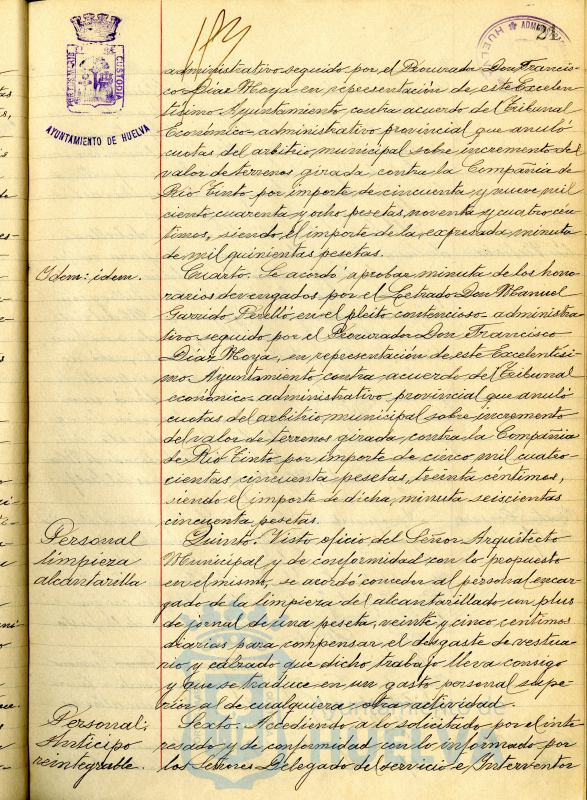 AYUNTAMIENTO DE HUELVA
administrativo seguido por el Procurador Don Francis-
co Díaz Moya en representación de este Excelen-
tísimo Ayuntamiento, contra acuerdo del Tribunal
Económico-administrativo provincial que anuló
cuotas del arbitrio municipal sobre incremento del
valor de terrenos girada contra la Compañía de
Río Tinto por importe de cincuenta y nueve mil
ciento cuarenta y ocho pesetas, noventa y cuatro cén-
timos, siendo el importe de la expresada minuta
de mil quinientas pesetas.
Idem: idem.
Cuarto. Se acordó aprobar minuta de los hono-
rarios devengados por el Letrado Don Manuel
Garrido Perelló, en el pleito contencioso-administra-
tivo seguido por el Procurador Don Francisco
Díaz Moya, en representación de este Excelentísi-
mo Ayuntamiento contra acuerdo del Tribunal
económico-administrativo provincial que anuló
cuotas del arbitrio municipal sobre incremento
del valor de terrenos girada, contra la Compañía
de Río Tinto por importe de cinco mil cuatro-
cientas cincuenta pesetas, treinta céntimos,
siendo el importe de dicha minuta seiscientas
cincuenta pesetas.
Personal
limpieza
alcantarilla
Quinto. Visto oficio del Señor Arquitecto
Municipal y de conformidad con lo propuesto
en el mismo, se acordó conceder al personal encar-
gado de la limpieza del alcantarillado, un plus
de jornal de una peseta, veinte y cinco céntimos
diarias para compensar el desgaste de vestua-
rio y calzado que dicho trabajo lleva consigo
y que se traduce en un gasto personal supe-
rior al de cualquiera otra actividad.
Personal:
Anticipo
reintegrable.
Sexto. Accediendo a lo solicitado por el inte-
resado y de conformidad con lo informado por
los Señores Delegado del servicio e Interventor
HUELVA